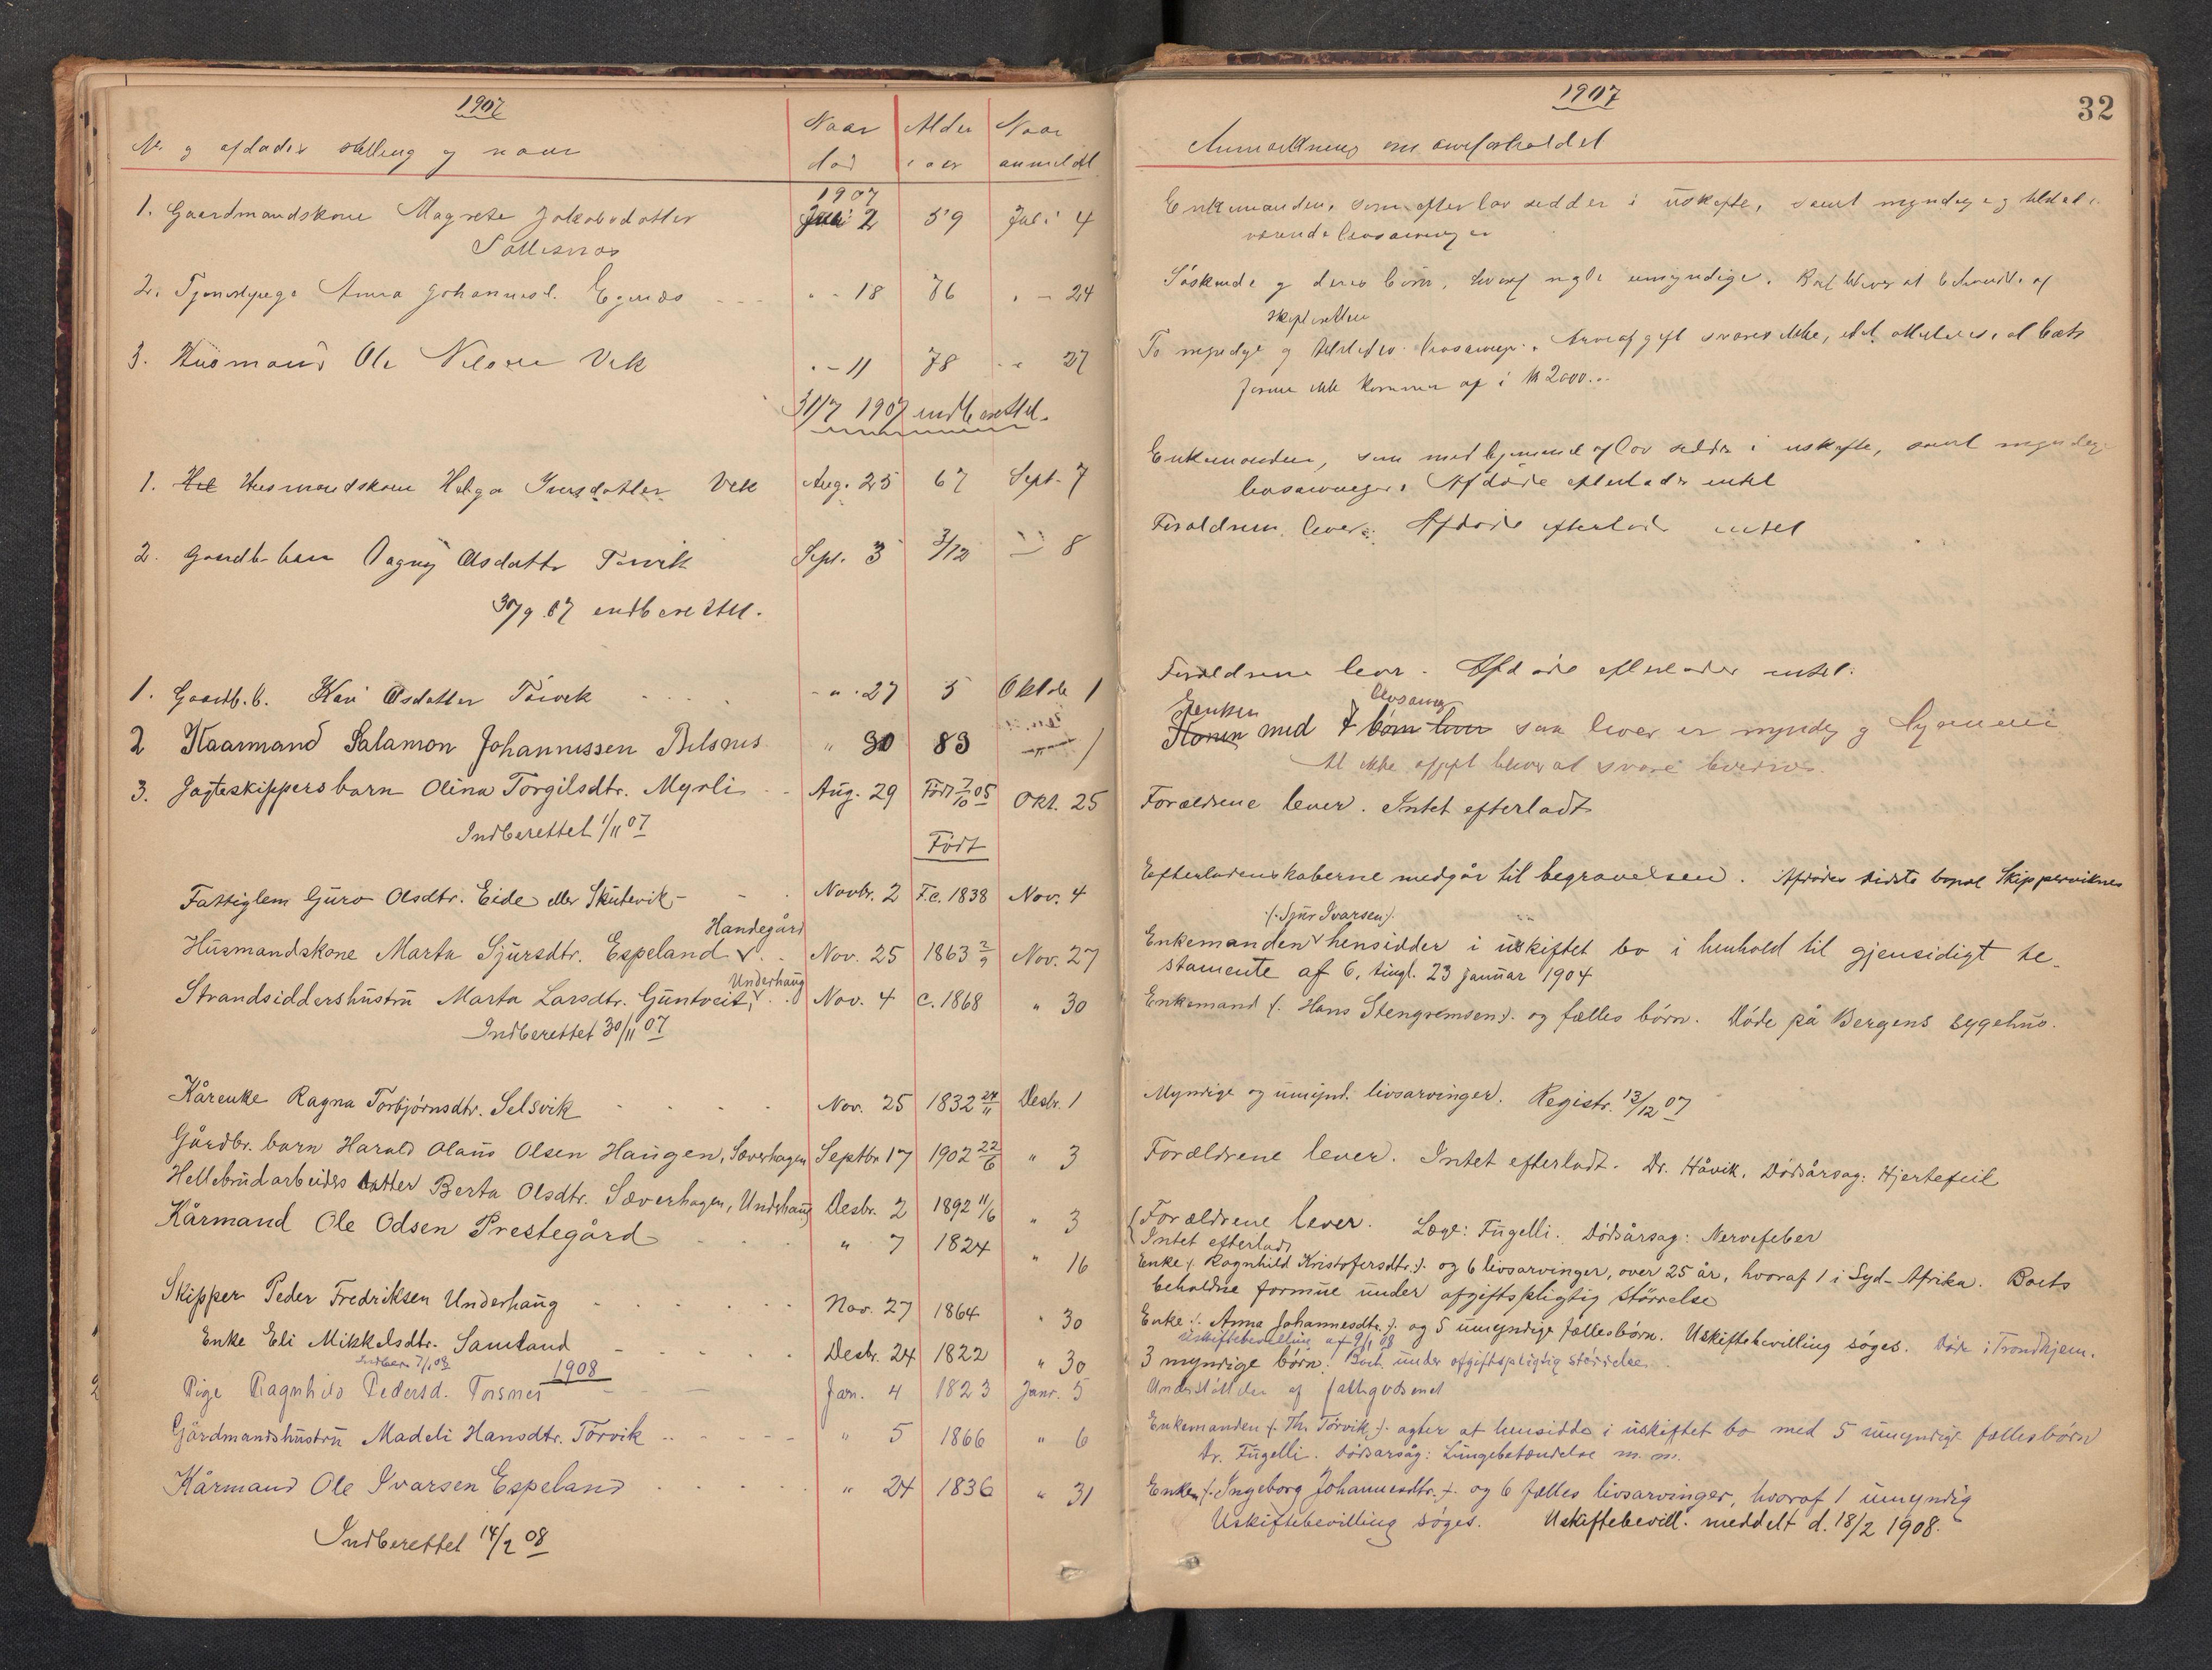 1907
No. og afdødes stilling og navn
Naar død
Alder i aar
Naar anmeldt
1907
1. Gaardmandskone Magrete Jakobsdatter Juli 2 59 Juli 4
2. Tjenestepige Anna Johannesd. Egenæs " - 18 76 " - 24
3. Husmand Ole Nilssen Vik " - 11 78 " " 27
31/7 1907 indberettet.
1. Husmandskone Helga Iversdatter Vik Aug. 25 67 Sept. 7
2. Gaardb. barn Dagny Olsdatter Tørvik Sept. 3 3/12 " 8
30/9 07 indberettet.
1. Gaardb. b. Kari Olsdatter Tørvik - " - 27 5 Oktob 1
2 Kaarmand Salamon Johannissen Bilsnes " 30 83 " 1
3. Jagteskippersbarn Olina Torgilsdtr. Myrli Aug. 29 Født 7/10 05 Okt. 25
Indberettet 1/11 07
Født
Fattiglem Guro Olsdtr. Eide eller Skutevik - Novbr. 2 F.c. 1838 Nov. 4
Handegård
Husmandskone Marta Sjursdtr. Espeland Nov. 25 1863 2/9 Nov. 27
Underhaug
Strandsiddershustru Marta Larsdtr. Guntveit, Nov. 4 c. 1868 " 30
Indberettet 30/11 07
Kårenke Ragna Torbjørnsdtr. Selsvik Nov. 25 1832 24/11 Desbr. 1
Gårdbr. barn Harald Olaus Olsen Haugen, Sæverhagen Septbr 17 1902 22/6 " 3
Hellebrudarbeiders datter Berta Olsdtr. Sæverhagen, Undrhaug Desbr. 2 1892 11/6 " 3
Kårmand Ole Odsen Prestegård " 7 1824 " 16
Skipper Peder Fredriksen Underhaug Nov. 27 1864 " 30
Enke Eli Mikkelsdtr. Samland Desbr. 24 1822 " 30
Indber. 7/1 08
1908
Pige Ragnhild Pedersd. Torsnes Jan. 4 1823 Janr. 5
Gårdmandshustru Madeli Hansdtr. Tørvik " 5 1866 " 6
Kårmand Ole Ivarsen Espeland " 24 1836 " 31
Indberettet 14/2 08
1907
32
Anmærkning om arveforholdet
Enkemanden, som efter lov sidder i uskifte, samt myndige og tilstede-
værende livsarvinger
Søskende og deres børn, hvoraf nogle umyndige. Boet bliver at behandle af
skifteretten
To myndige og tilstedev. livsarving. Arveafgift svares ikke, idet attesteres, at boets
formue ikke kommer op i kr 2000..
Enkemanden, som med hjemmel af lov sidder i uskifte, samt myndige
livsarvinger. Afdøde efterlader intet
Foraldrene lever. Afdøde efterlader intet
Foraldrene lever. Afdøde efterlader intet.
Enken livsarving
Konen med 7 børn lever som lever er myndig og hjemme
At ikke afgift bliver at svare bevidnes.
Forældrene lever. Intet efterladt
Efterladenskaberne medgår til begravelsen. Afdødes sidste bopæl Skipperviknes
(Sjur Ivarsen).
Enkemanden hensidder i uskiftet bo i henhold til gjensidigt te-
stamente af 6, tingl. 23 januar 1904
Enkemand (. Hans Stengremsen). og fælles børn. Døde på Bergens sygehus.
Myndige og umynd. livsarvinger. Registr. 13/12 07
Forældrene lever. Intet efterladt. Dr. Håvik. Dødsårsag: Hjertefeil
Forældrene lever. Læge: Fugelli. Dødsårsag: Nervefeber
Intet efterladt
Enke (. Ragnhild Kristofersdtr.). og 6 livsarvinger, over 25 år, hvoraf 1 i Syd-Afrika. Boets
beholdne formue under afgiftspligtig størrelse
Enke (. Anna Johannesdtr.). og 5 umyndige fællesbørn. Uskiftebevilling søges. Døde i Trondhjem.
Uskiftebevilling af 9/1 08
3 myndige børn. Boet under afgiftspligtig størrelse
Understøttedes af fattigvæsenet
Enkemanden (. Th. Tørvik). agter at hensidde i uskiftet bo med 5 umyndige fællesbørn
Dr. Fugelli. Dødsårsag: Lungebetændelse m. m.
Enken (. Ingeborg Johannesdtr.). og 6 fælles livsarvinger, hvoraf 1 umyndig
Uskiftebevilling søges. Uskiftebevill. meddelt d. 18/2 1908.